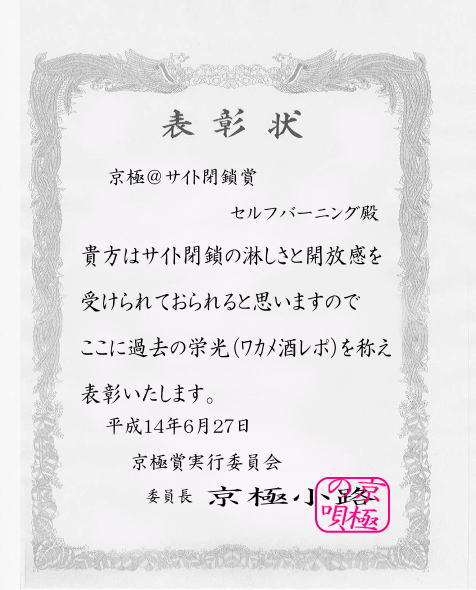 表彰状
京極＠サイト閉鎖賞
セルフバーニング殿
貴方はサイト閉鎖の淋しさと開放感を
受けられておられると思いますので
ここに過去の栄光(ワカメ酒レポ)を称え
表彰いたします。
平成14年6月27日
京極賞実行委員会
委員長 京極小路
京極の唄